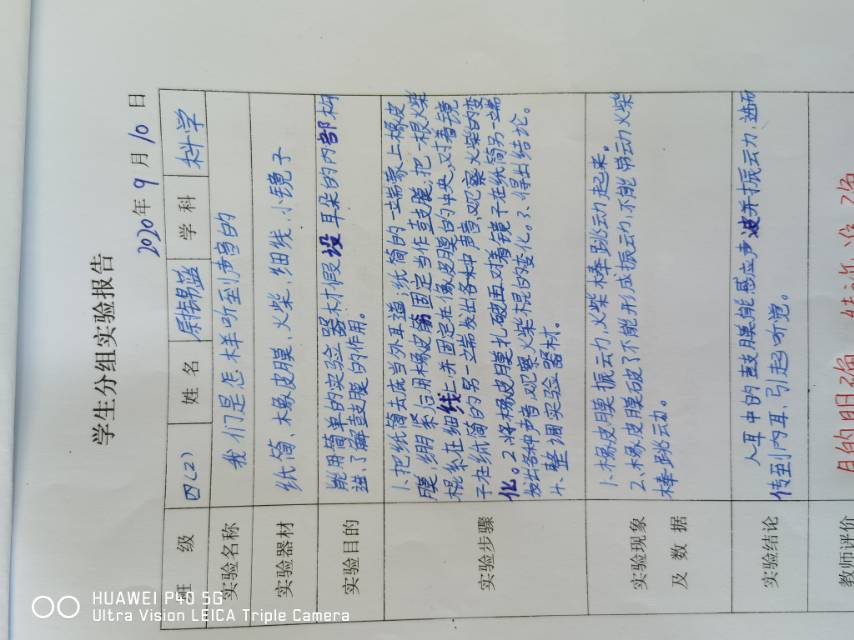 学生分组实验报告
2020年9月10日
班级 四(2) 姓名 锦蓝 学科 科学
实验名称 我们是怎样听到声音的
实验器材 纸筒、橡皮膜、火柴、细线、小镜子
实验目的 能用简单的实验器材假设耳朵的内部构
造,了解鼓膜的作用。
实验步骤
1.把纸筒去底当外耳道;纸筒的一端蒙上橡皮
膜,绷紧后用橡皮筋固定当作鼓膜,把一根火柴
棍系在细线上并固定在像皮膜的中央,对着镜
子在纸筒的另一端发出各种声音,观察火柴的变
化。2.将橡皮膜扎破再对着镜子在纸筒另一端
发出各种声音,观察火柴棍的变化。3、得出结论。
4、整理实验器材。
实验现象
及数据
1.橡皮膜振动,火柴棒跳动起来。
2.橡皮膜破了不能形成振动,不能带动火柴
棒跳动。
实验结论
人耳中的鼓膜能感应声波并振动,进而
传到内耳,引起听觉。
教师评价 目的明确 结论准确
HUAWEI P40 5G
Ultra Vision LEICA Triple Camera